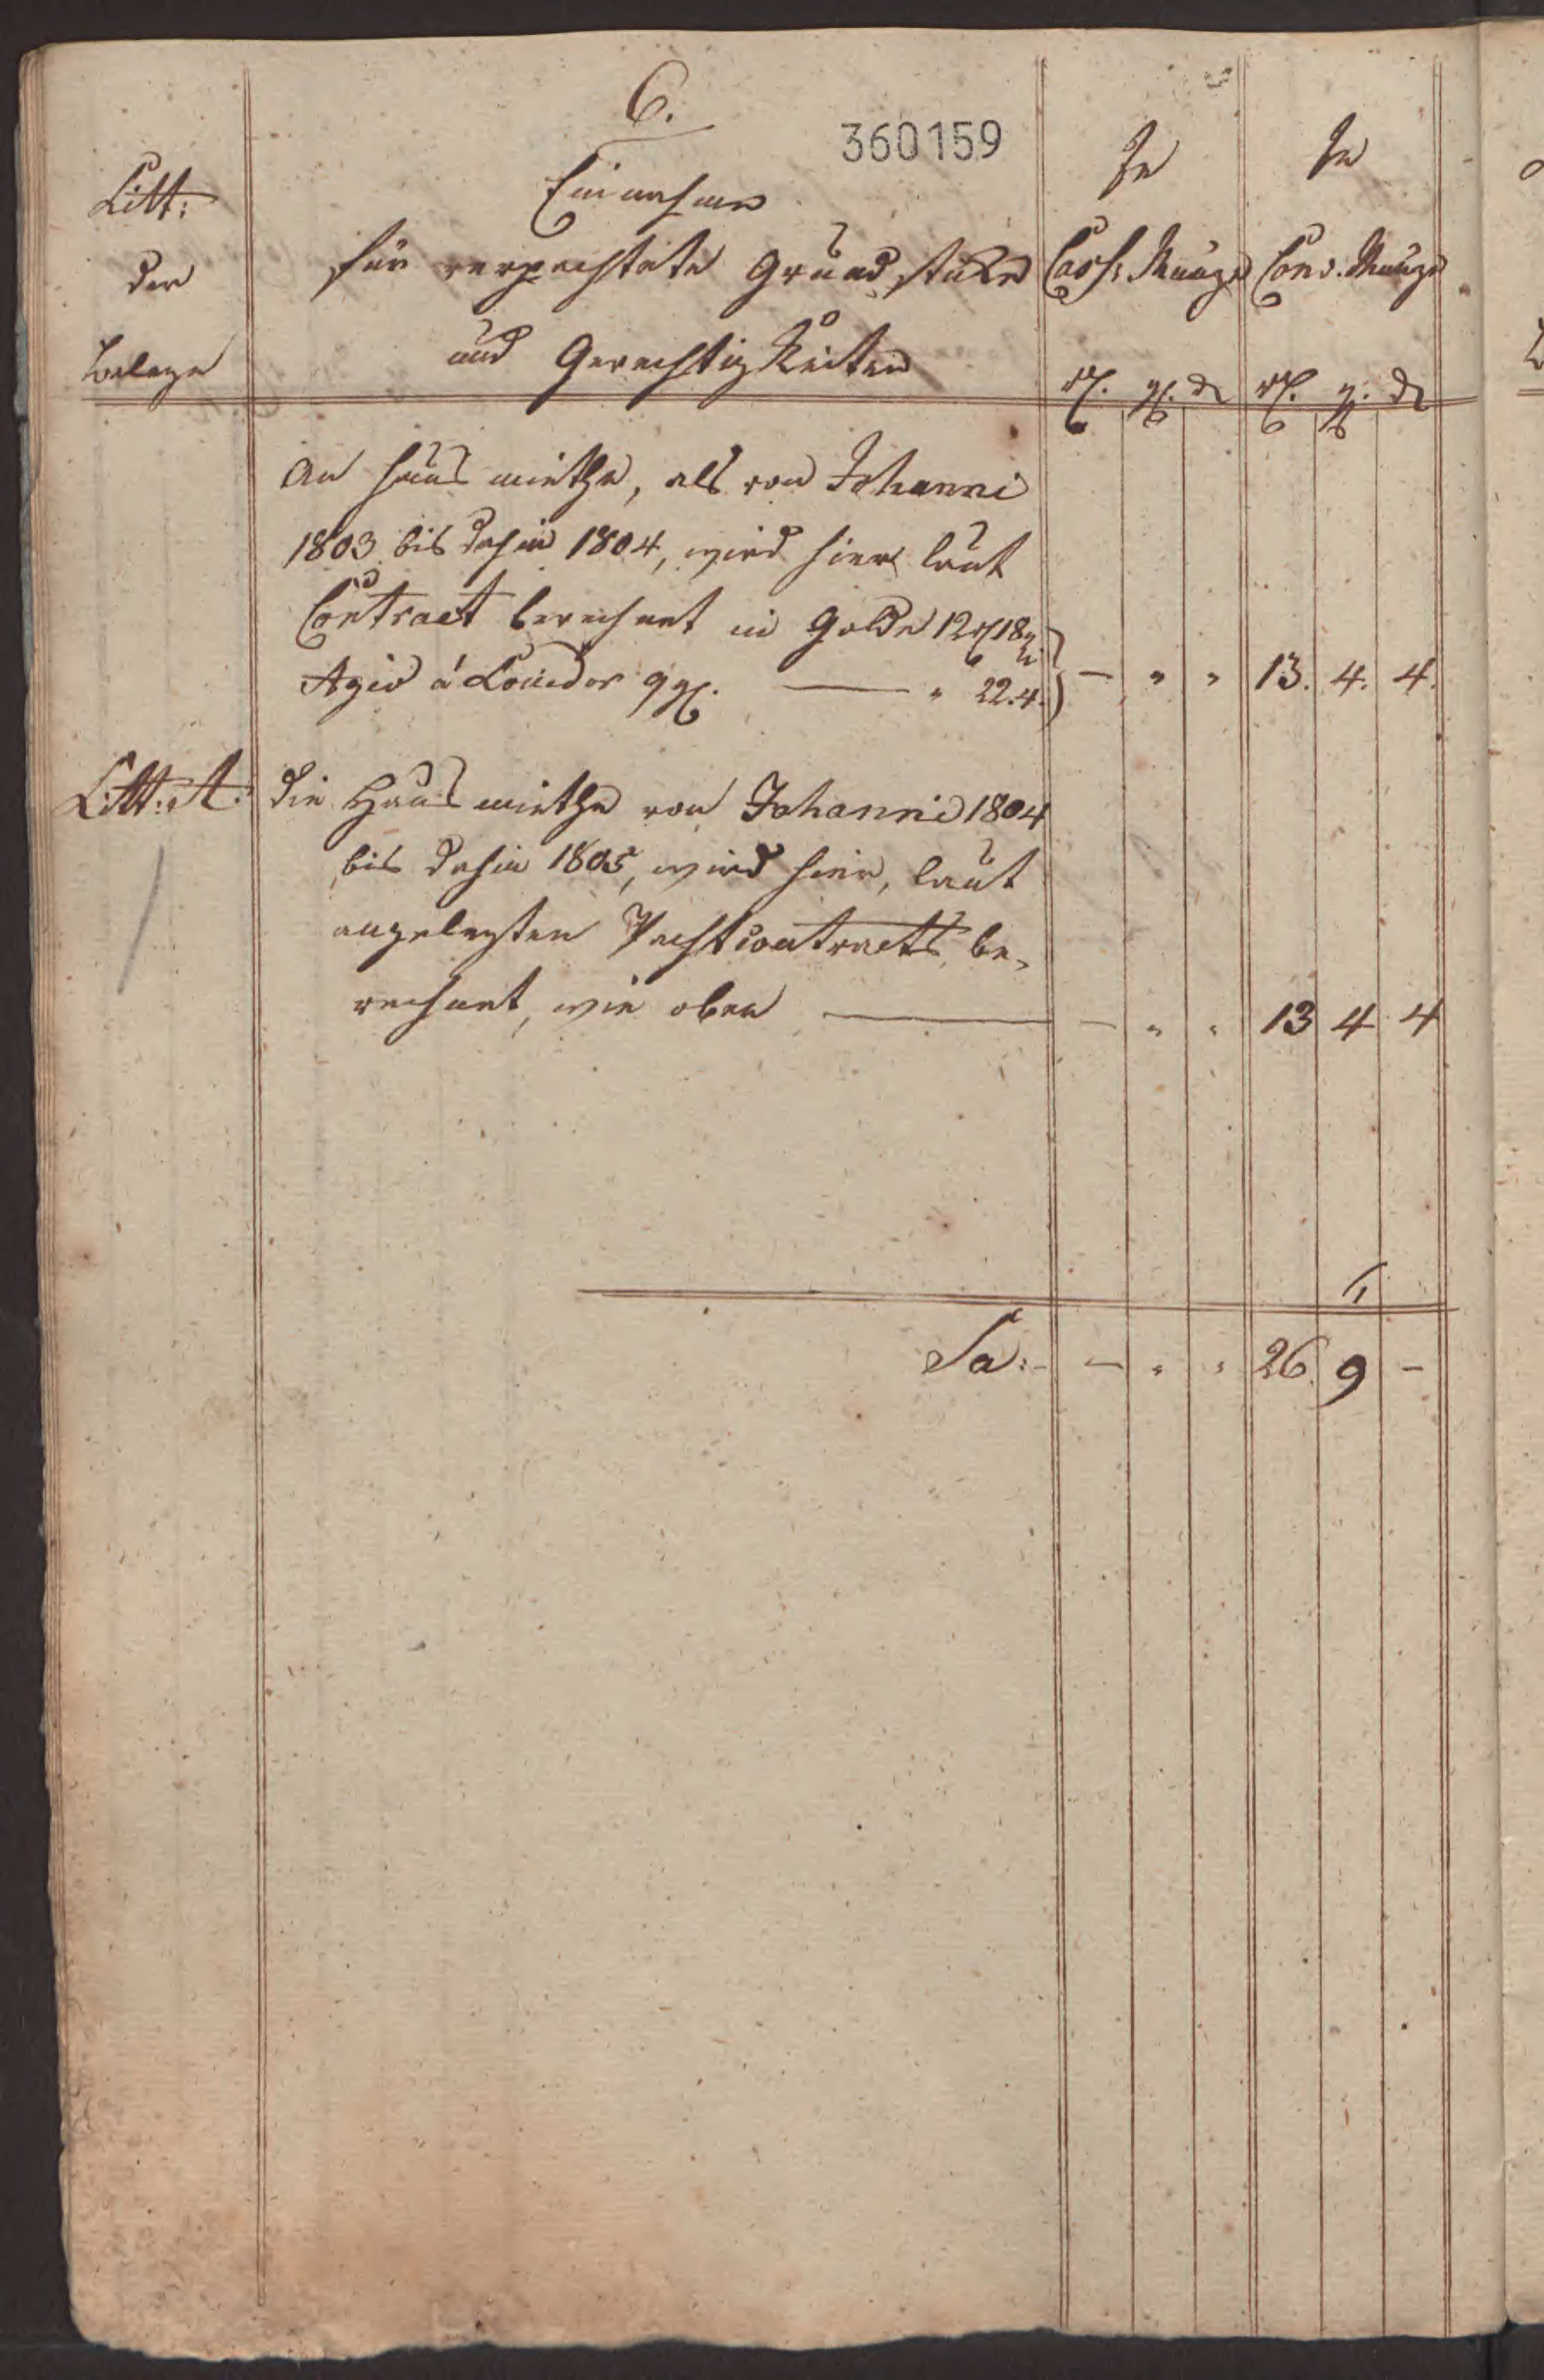 6.
360159
Litt:
der
Belege
Einnahme
für verpachtete Grundstüke
und Gerechtigkeiten
In
Cass: Münze
rl. gl. d
In
Conv. Münze
rl. gl. d
An Haus miethe, als von Johanni
1803 bis dahin 1804, wird hier laut
Contract berechnet in Golde 12 rl 18 gl
Agio á Louisdor 9 gl. — " 22. 4. — " " 13. 4. 4.
Litt: A. die Haus miethe von Johanni 1804
bis dahin 1805, wird hier, laut
angelegten Pachtcontracts be-
rechnet, wie oben — — " " 13 4 4
Sa: — " " 26. 9 —